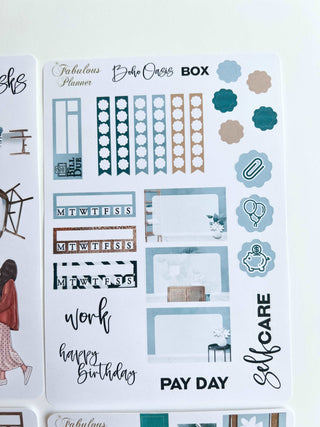 Fabulous Planner
Boho Oasis BOX
BILL DUE
MTWTFSS
MTWTFSS
MTWTFSS
work
happy birthday
PAY DAY
self CARE
Fabulous